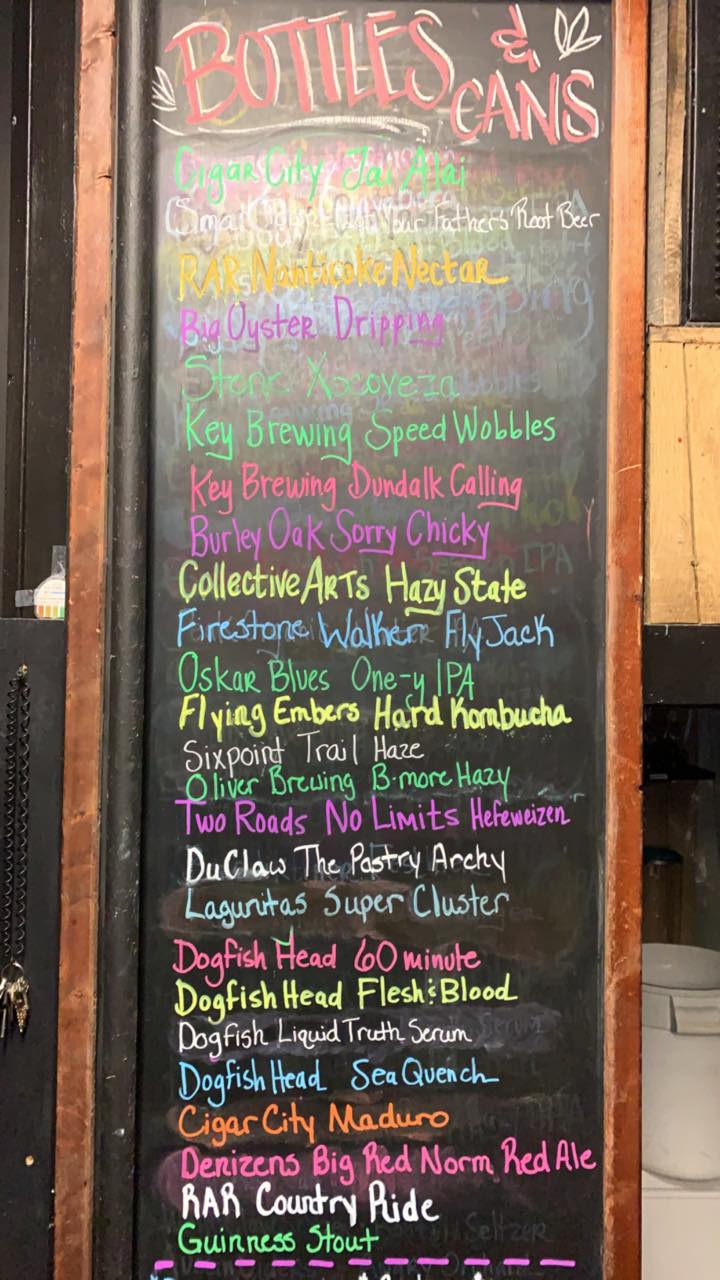 BOTTLES & CANS
Cigar City Jai Alai
Your Father's Root Beer
RAR Nanticoke Nectar
Big Oyster Dripping
Stone Xocoveza
Key Brewing Speed Wobbles
Key Brewing Dundalk Calling
Burley Oak Sorry Chicky
Collective ARTS Hazy State
Firestone Walker Fly Jack
Oskar Blues One-y IPA
Flying Embers Hard Kombucha
Sixpoint Trail Haze
Oliver Brewing B-more Hazy
Two Roads No Limits Hefeweizen
DuClaw The Pastry Archy
Lagunitas Super Cluster
Dogfish Head 60 minute
Dogfish Head Flesh & Blood
Dogfish Liquid Truth Serum
Dogfish Head SeaQuench
Cigar City Maduro
Denizens Big Red Norm Red Ale
RAR Country Ride
Guinness Stout